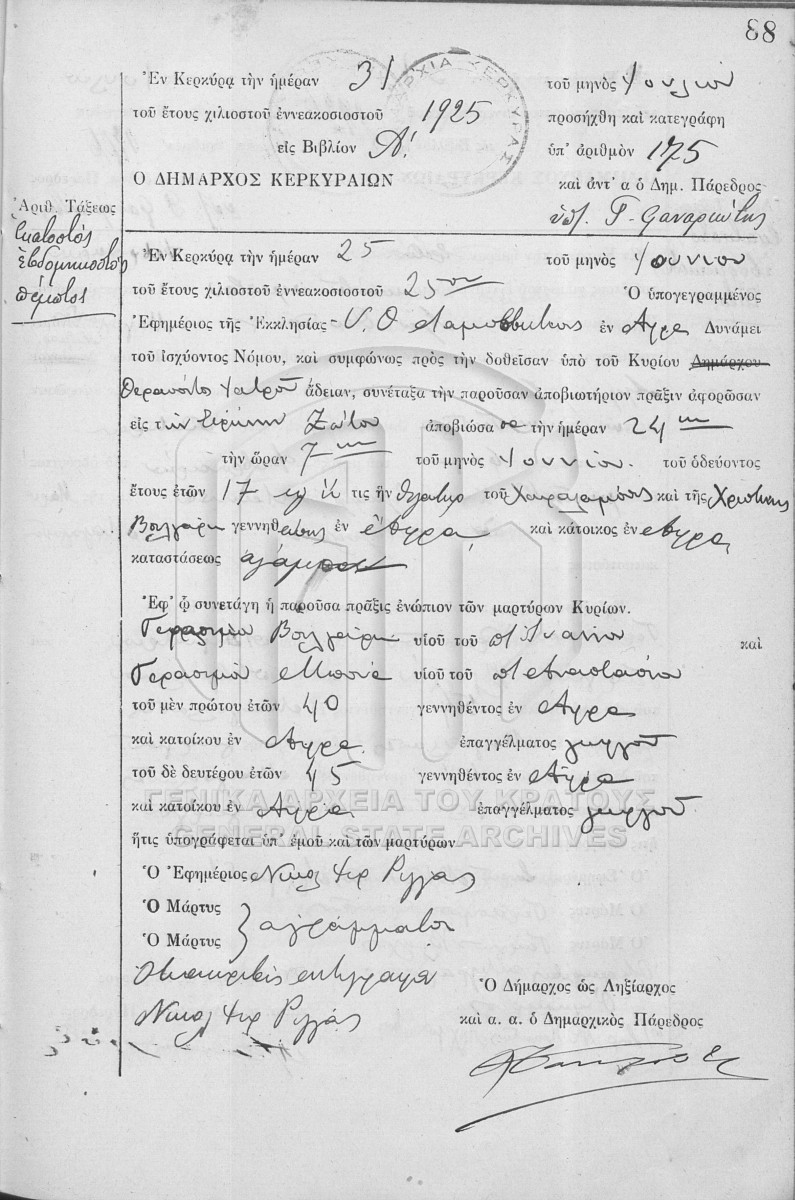 88
Ἐν Κερκύρᾳ τὴν ἡμέραν 31 τοῦ μηνὸς Ἰουλίου
τοῦ ἔτους χιλιοστοῦ ἐννεακοσιοστοῦ 1925 προσήχθη καὶ κατεγράφη
εἰς Βιβλίον Α! ὑπ' ἀριθμὸν 175
Ο ΔΗΜΑΡΧΟΣ ΚΕΡΚΥΡΑΙΩΝ καὶ ἀντ' α ὁ Δημ. Πάρεδρος
ΑΡΧΙΑ ΚΕΡΚΥΡΑΣ
ὑπ. Γ.
Ἀριθ. Τάξεως
Ἑκατοστός
ἑβδομηκοστός
πέμπτος
Ἐν Κερκύρᾳ τὴν ἡμέραν 25 τοῦ μηνὸς Ἰουνίου
τοῦ ἔτους χιλιοστοῦ ἐννεακοσιοστοῦ 25ου Ὁ ὑπογεγραμμένος
Ἐφημέριος τῆς Ἐκκλησίας Υ. Θ ἐν Δυνάμει
τοῦ ἰσχύοντος Νόμου, καὶ συμφώνως πρὸς τὴν δοθεῖσαν ὑπὸ τοῦ Κυρίου Δημάρχου
Θεράποντος Ἰατροῦ ἄδειαν, συνέταξα τὴν παροῦσαν ἀποβιωτήριον πρᾶξιν ἀφορῶσαν
εἰς τὴν Εἰρήνην ἀποβιώσασα τὴν ἡμέραν 24
τὴν ὥραν 7 τοῦ μηνὸς Ἰουνίου. τοῦ ὁδεύοντος
ἔτους ἐτῶν 17 τις ἦν θυγάτηρ τοῦ Χαραλάμπους καὶ τῆς Χρυσάνθης
Βουλγάρη γεννηθείσης ἐν καὶ κάτοικος ἐν
καταστάσεως ἀγάμου
Ἐφ' ᾧ συνετάγη ἡ παροῦσα πρᾶξις ἐνώπιον τῶν μαρτύρων Κυρίων.
Γερασίμου Βουλγάρη υἱοῦ τοῦ καὶ
Γερασίμου υἱοῦ τοῦ Ἀναστασίου
τοῦ μὲν πρώτου ἐτῶν 40 γεννηθέντος ἐν
καὶ κατοίκου ἐν ἐπαγγέλματος γεωργοῦ
τοῦ δὲ δευτέρου ἐτῶν 45 γεννηθέντος ἐν
ΓΕΝΙΚΑ ΑΡΧΕΙΑ ΤΟΥ ΚΡΑΤΟΥΣ
καὶ κατοίκου ἐν ἐπαγγέλματος γεωργοῦ
GENERAL STATE ARCHIVES
ἥτις ὑπογράφεται ὑπ' ἐμοῦ καὶ τῶν μαρτύρων
Ὁ Ἐφημέριος Νικολ Ἱερ Ρίγγας
Ὁ Μάρτυς
ἀγράμματοι
Ὁ Μάρτυς
ἀντίγραφον
Ὁ Δήμαρχος ὡς Ληξίαρχος
Νικολ Ἱερ Ρίγγας
καὶ α. α. ὁ Δημαρχικὸς Πάρεδρος